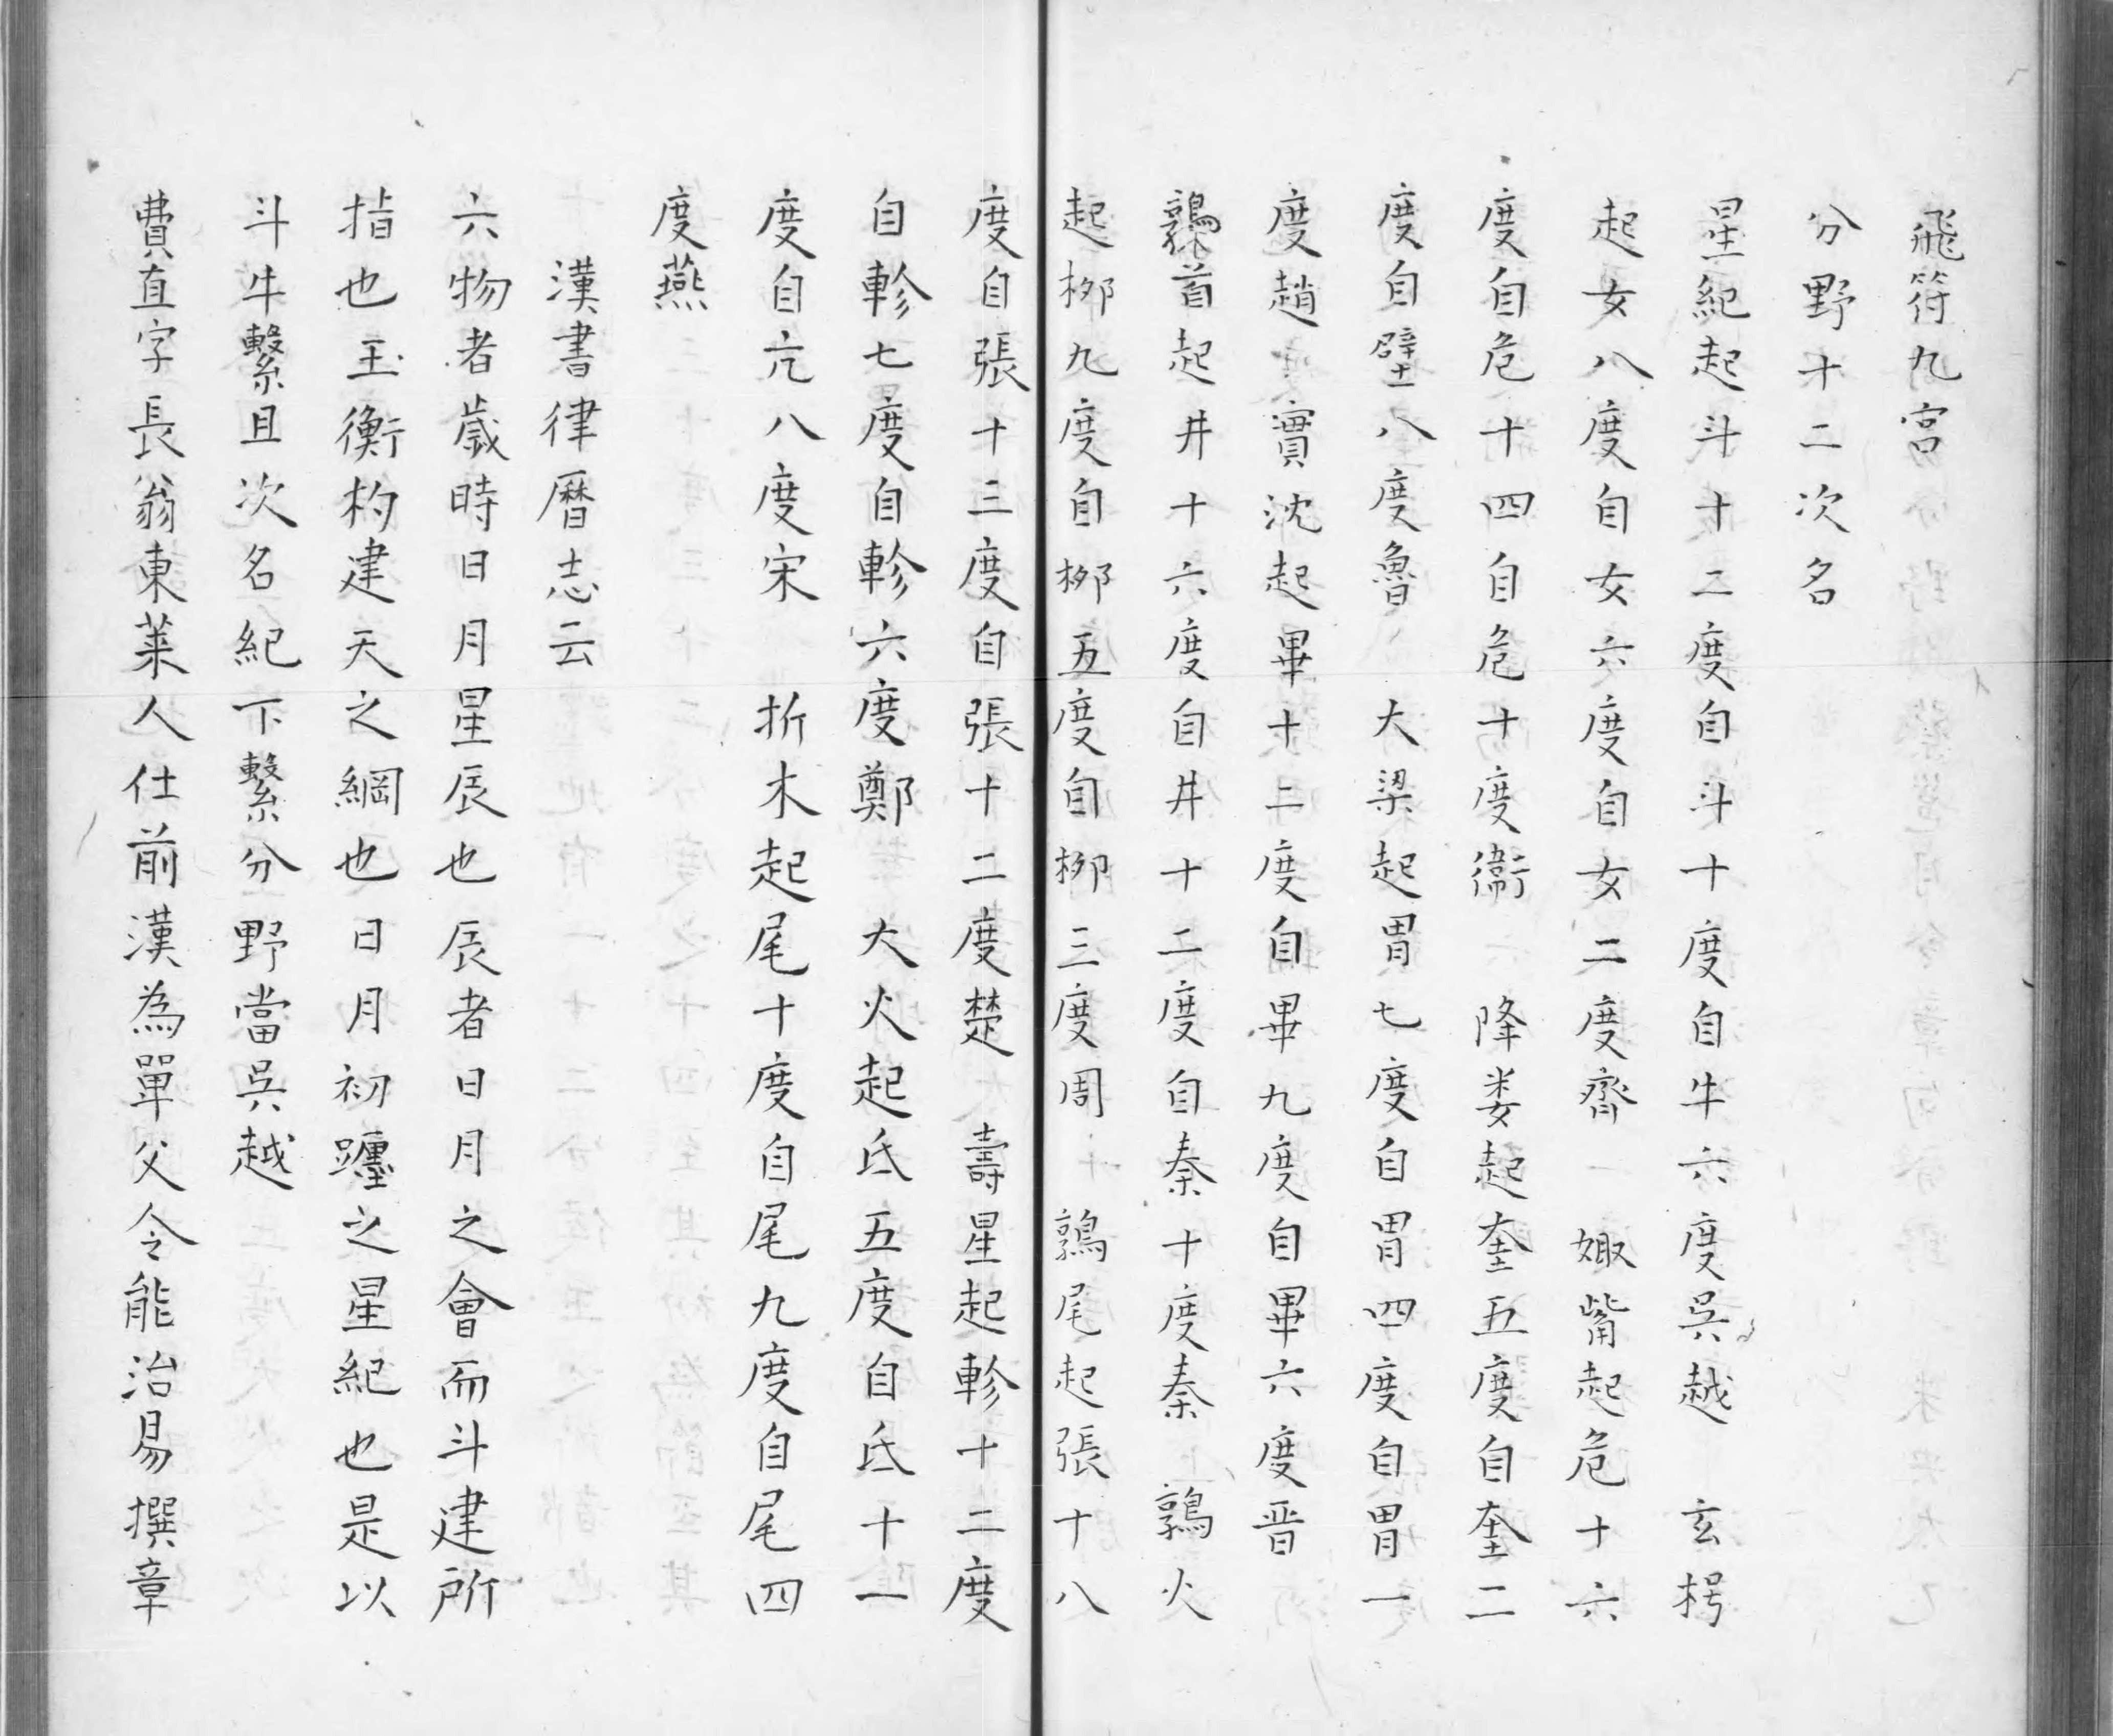 飛符九宮
分野十二次名
星紀起斗十二度自斗十度自牛六度吳越　玄枵
起女八度自女六度自女二度齊　娵觜起危十六
度自危十四自危十度衞　降娄起奎五度自奎二
度自壁八度魯　大梁起胃七度自胃四度自胃一
度趙　實沈起畢十二度自畢九度自畢六度晋
鶉首起井十六度自井十二度自秦十度秦　鶉火
起柳九度自柳五度自柳三度周　鶉尾起張十八
度自張十三度自張十二度楚　壽星起軫十二度
自軫七度自軫六度鄭　大火起氐五度自氐十一
度自亢八度宋　折木起尾十度自尾九度自尾四
度燕
漢書律暦志云
六物者歲時日月星辰也辰者日月之會而斗建所
指也玉衡杓建天之綱也日月初躔之星紀也是以
斗牛繫且次名紀下繫分野當吳越
費直字長翁東萊人仕前漢為單父令能治易撰章